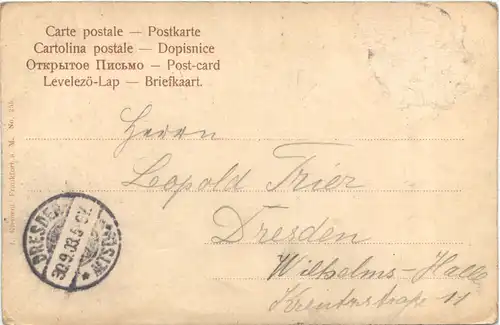 Carte postale — Postkarte
Cartolina postale — Dopisnice
Открытое Письмо — Post-card
Levelezö-Lap — Briefkaart.
Herrn
Leopold Trier
Dresden
Wilhelms-Halle
11
DRESDEN
30.9.03.5
Frankfurt a. M. No.